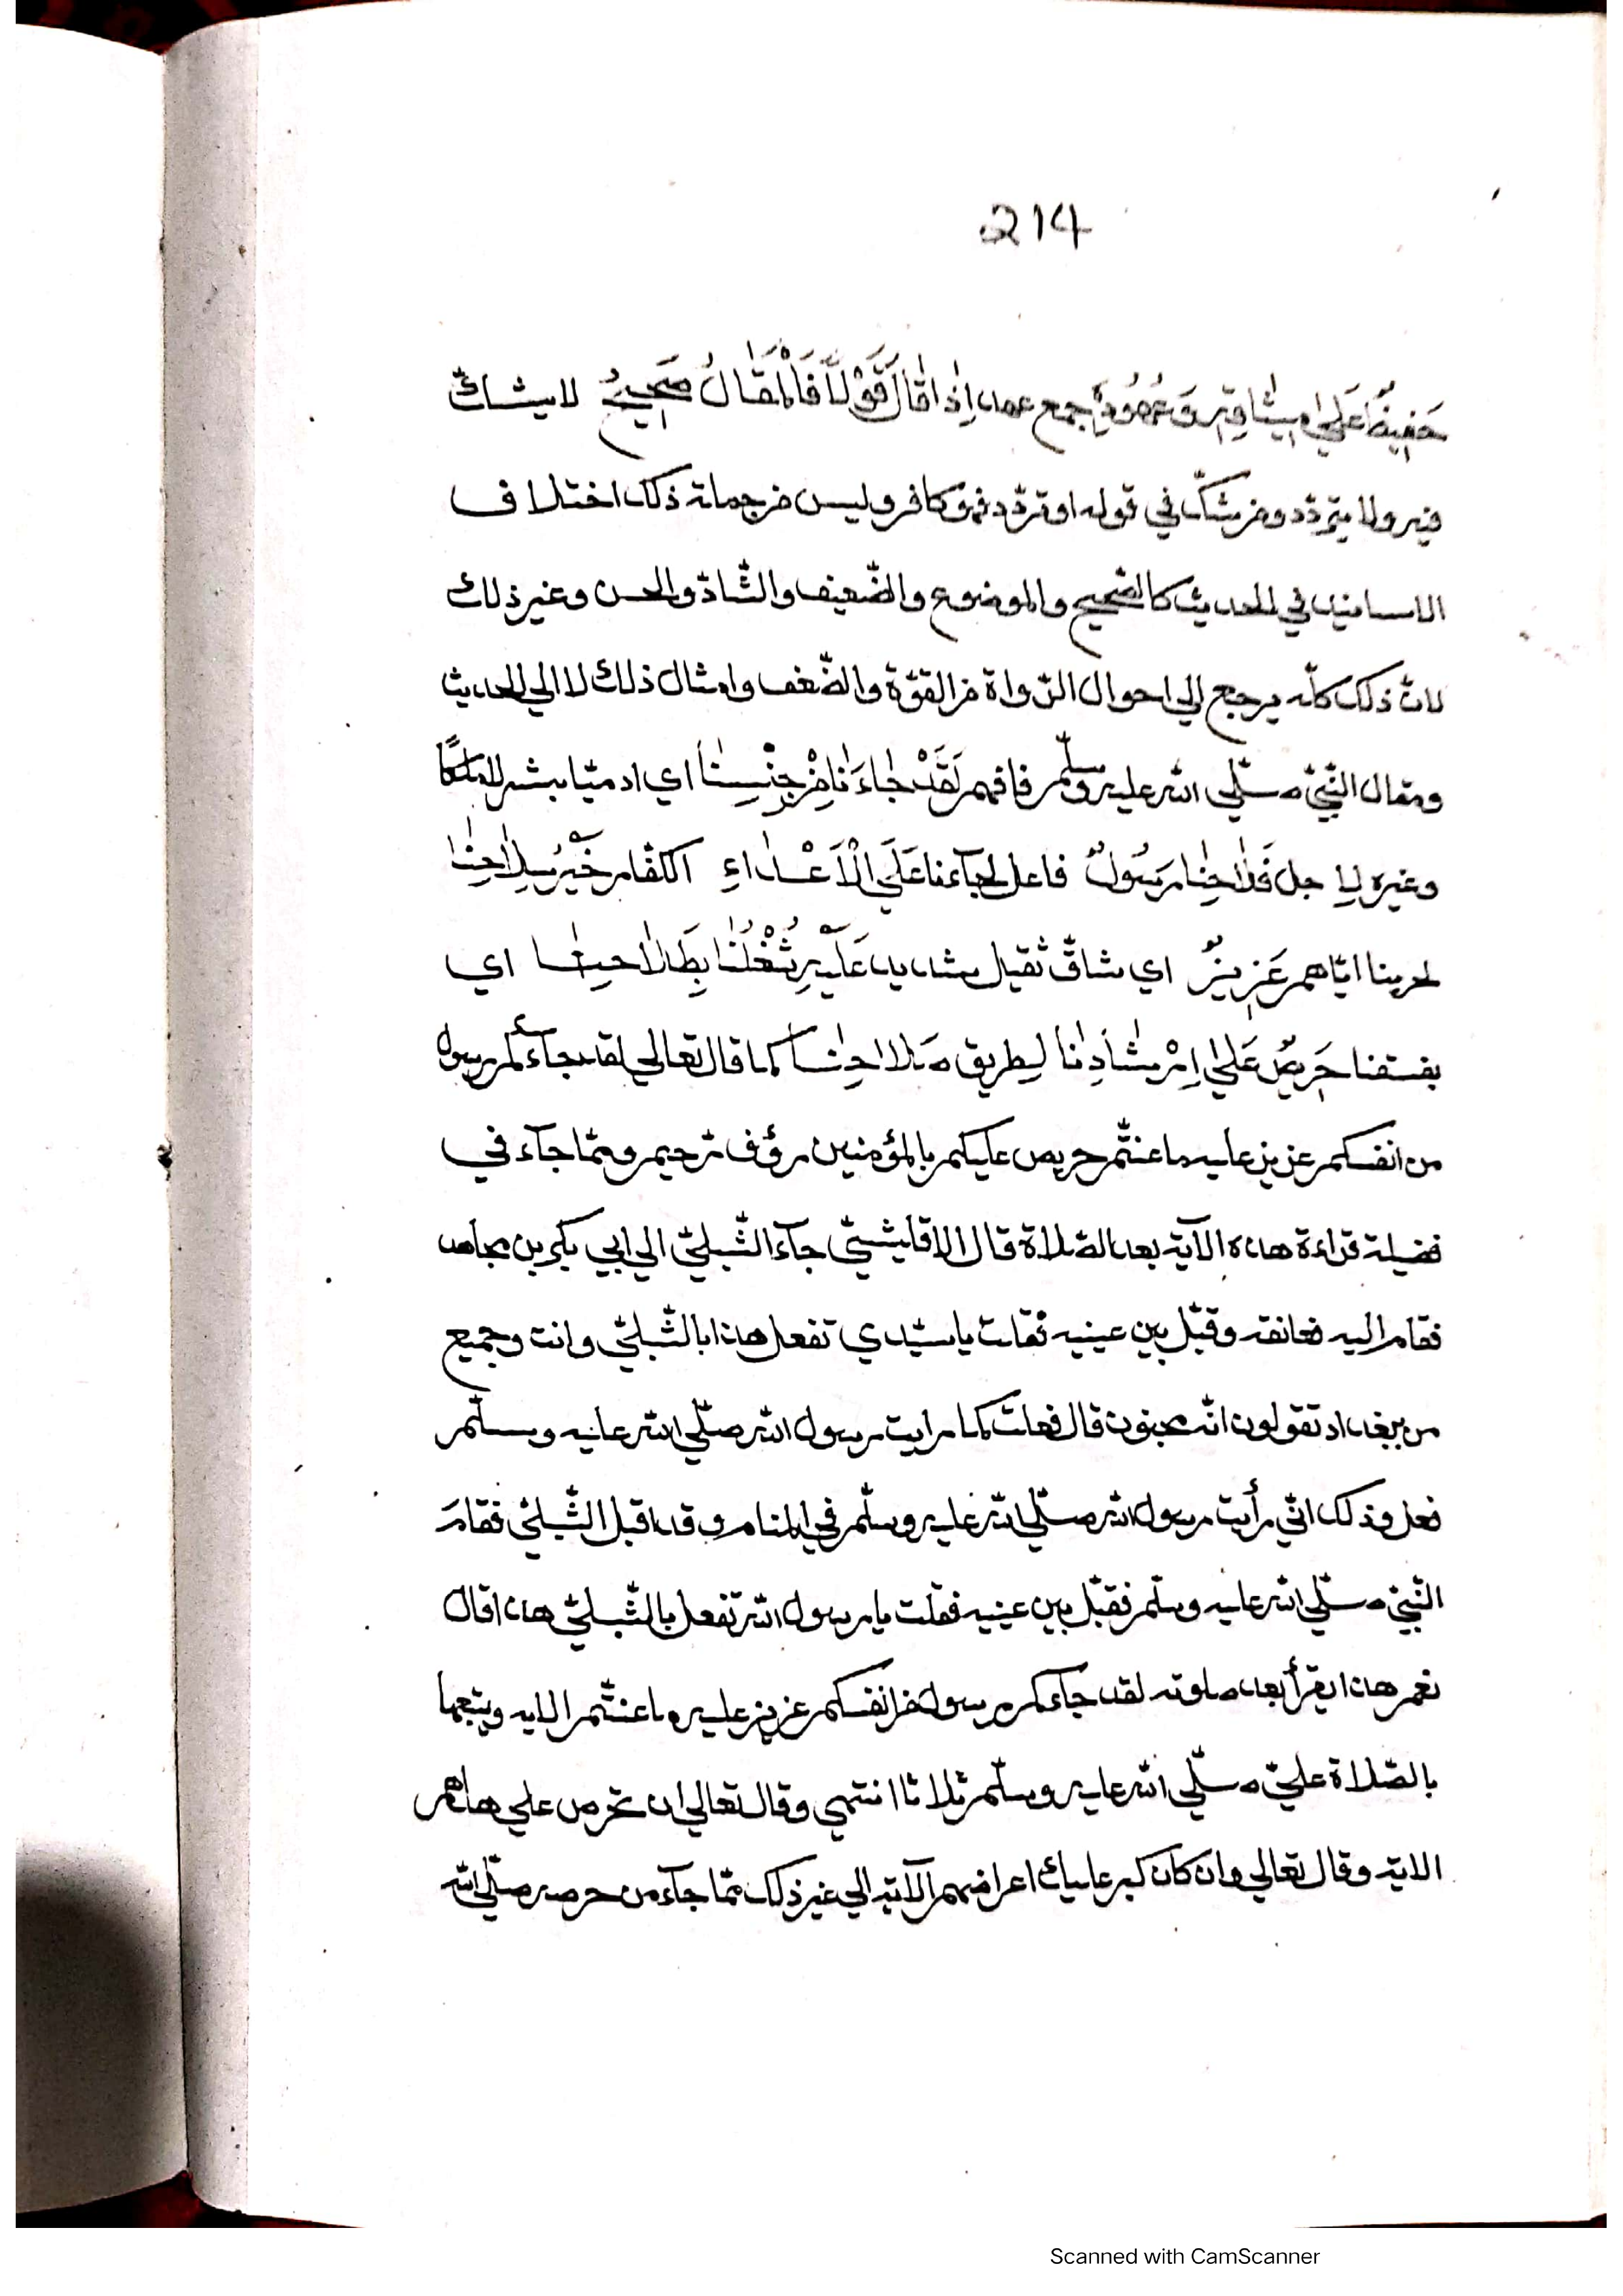 214
حَفِيظٌ عَلٰي مِيْثَاقِهِ وَعُهُوْدِهِ جمع عهد اِذَا قَالَ قَوْلًا فَالْمَقَالُ صَحِيحٌ لا يشك
فيه ولا يتردّد ومن شكّ في قوله او تردّد فهو كافر وليس من جملة ذلك اختلاف
الاسانيد في الحديث كالصّحيح والموضوع والضّعيف والشّاذّ والحسن وغير ذلك
لانّ ذلك كلّه يرجع الي احوال الرّواة من القوّة والضّعف وامثال ذلك لا الي الحديث
ومقال النّبيّ صلّي الله عليه وسلّم فافهم لَقَدْ جَاءَنَا مِنْ جِنْسِنَا اي ادميّا بشرا لا ملكًا
وغيره لاجل فَلَاحِنَا رَسُوْلٌ فاعل لجآءنا عَلَي الْاَعْدَاءِ الكفّار خَيْرُ سِلَاحِنَا
لحربنا ايّاهم عَزِيزٌ اي شاقّ ثقيل شديد عَلَيْهِ شُغْلُنَا بِطَلَاحِنَا اي
بفسقنا حَرِيصٌ عَلٰي اِرْشَادِنَا لطريق صَلَاحِنَا كما قال تعالي لقد جآءكم رسول
من انفسكم عزيز عليه ما عنتّم حريص عليكم بالمؤمنين رؤف رّحيم وممّا جآء في
فضيلة قراءة هذه الآية بعد الصّلاة قال الاقليشيّ جآء الشّبليّ الي ابي بكر بن مجاهد
فقام اليه فعانقه وقبّل بين عينيه فقلت يا سيّدي تفعل هذا بالشّبليّ وانت وجميع
من ببغداد تقولون انّه مجنون قال فعلت كما رايت رسول الله صلّي الله عليه وسلّم
فعل وذلك انّي رأيت رسول الله صلّي الله عليه وسلّم في المنام وقد اقبل الشّبليّ فقام
النّبيّ صلّي الله عليه وسلّم فقبّل بين عينيه فقلت يا رسول الله تفعل بالشّبليّ هذا قال
نعم هذا يقرأ بعد صلوته لقد جاءكم رسول من انفسكم عزيز عليه ما عنتّم الايه ويتبعها
بالصّلاة عليّ صلّي الله عليه وسلّم ثلاثا انتهي وقال تعالي ان تحرص علي هداهم
الاية وقال تعالي وان كان كبر عليك اعراضهم الآية الي غير ذلك ممّا جآء من حرصه صلّي الله
Scanned with CamScanner